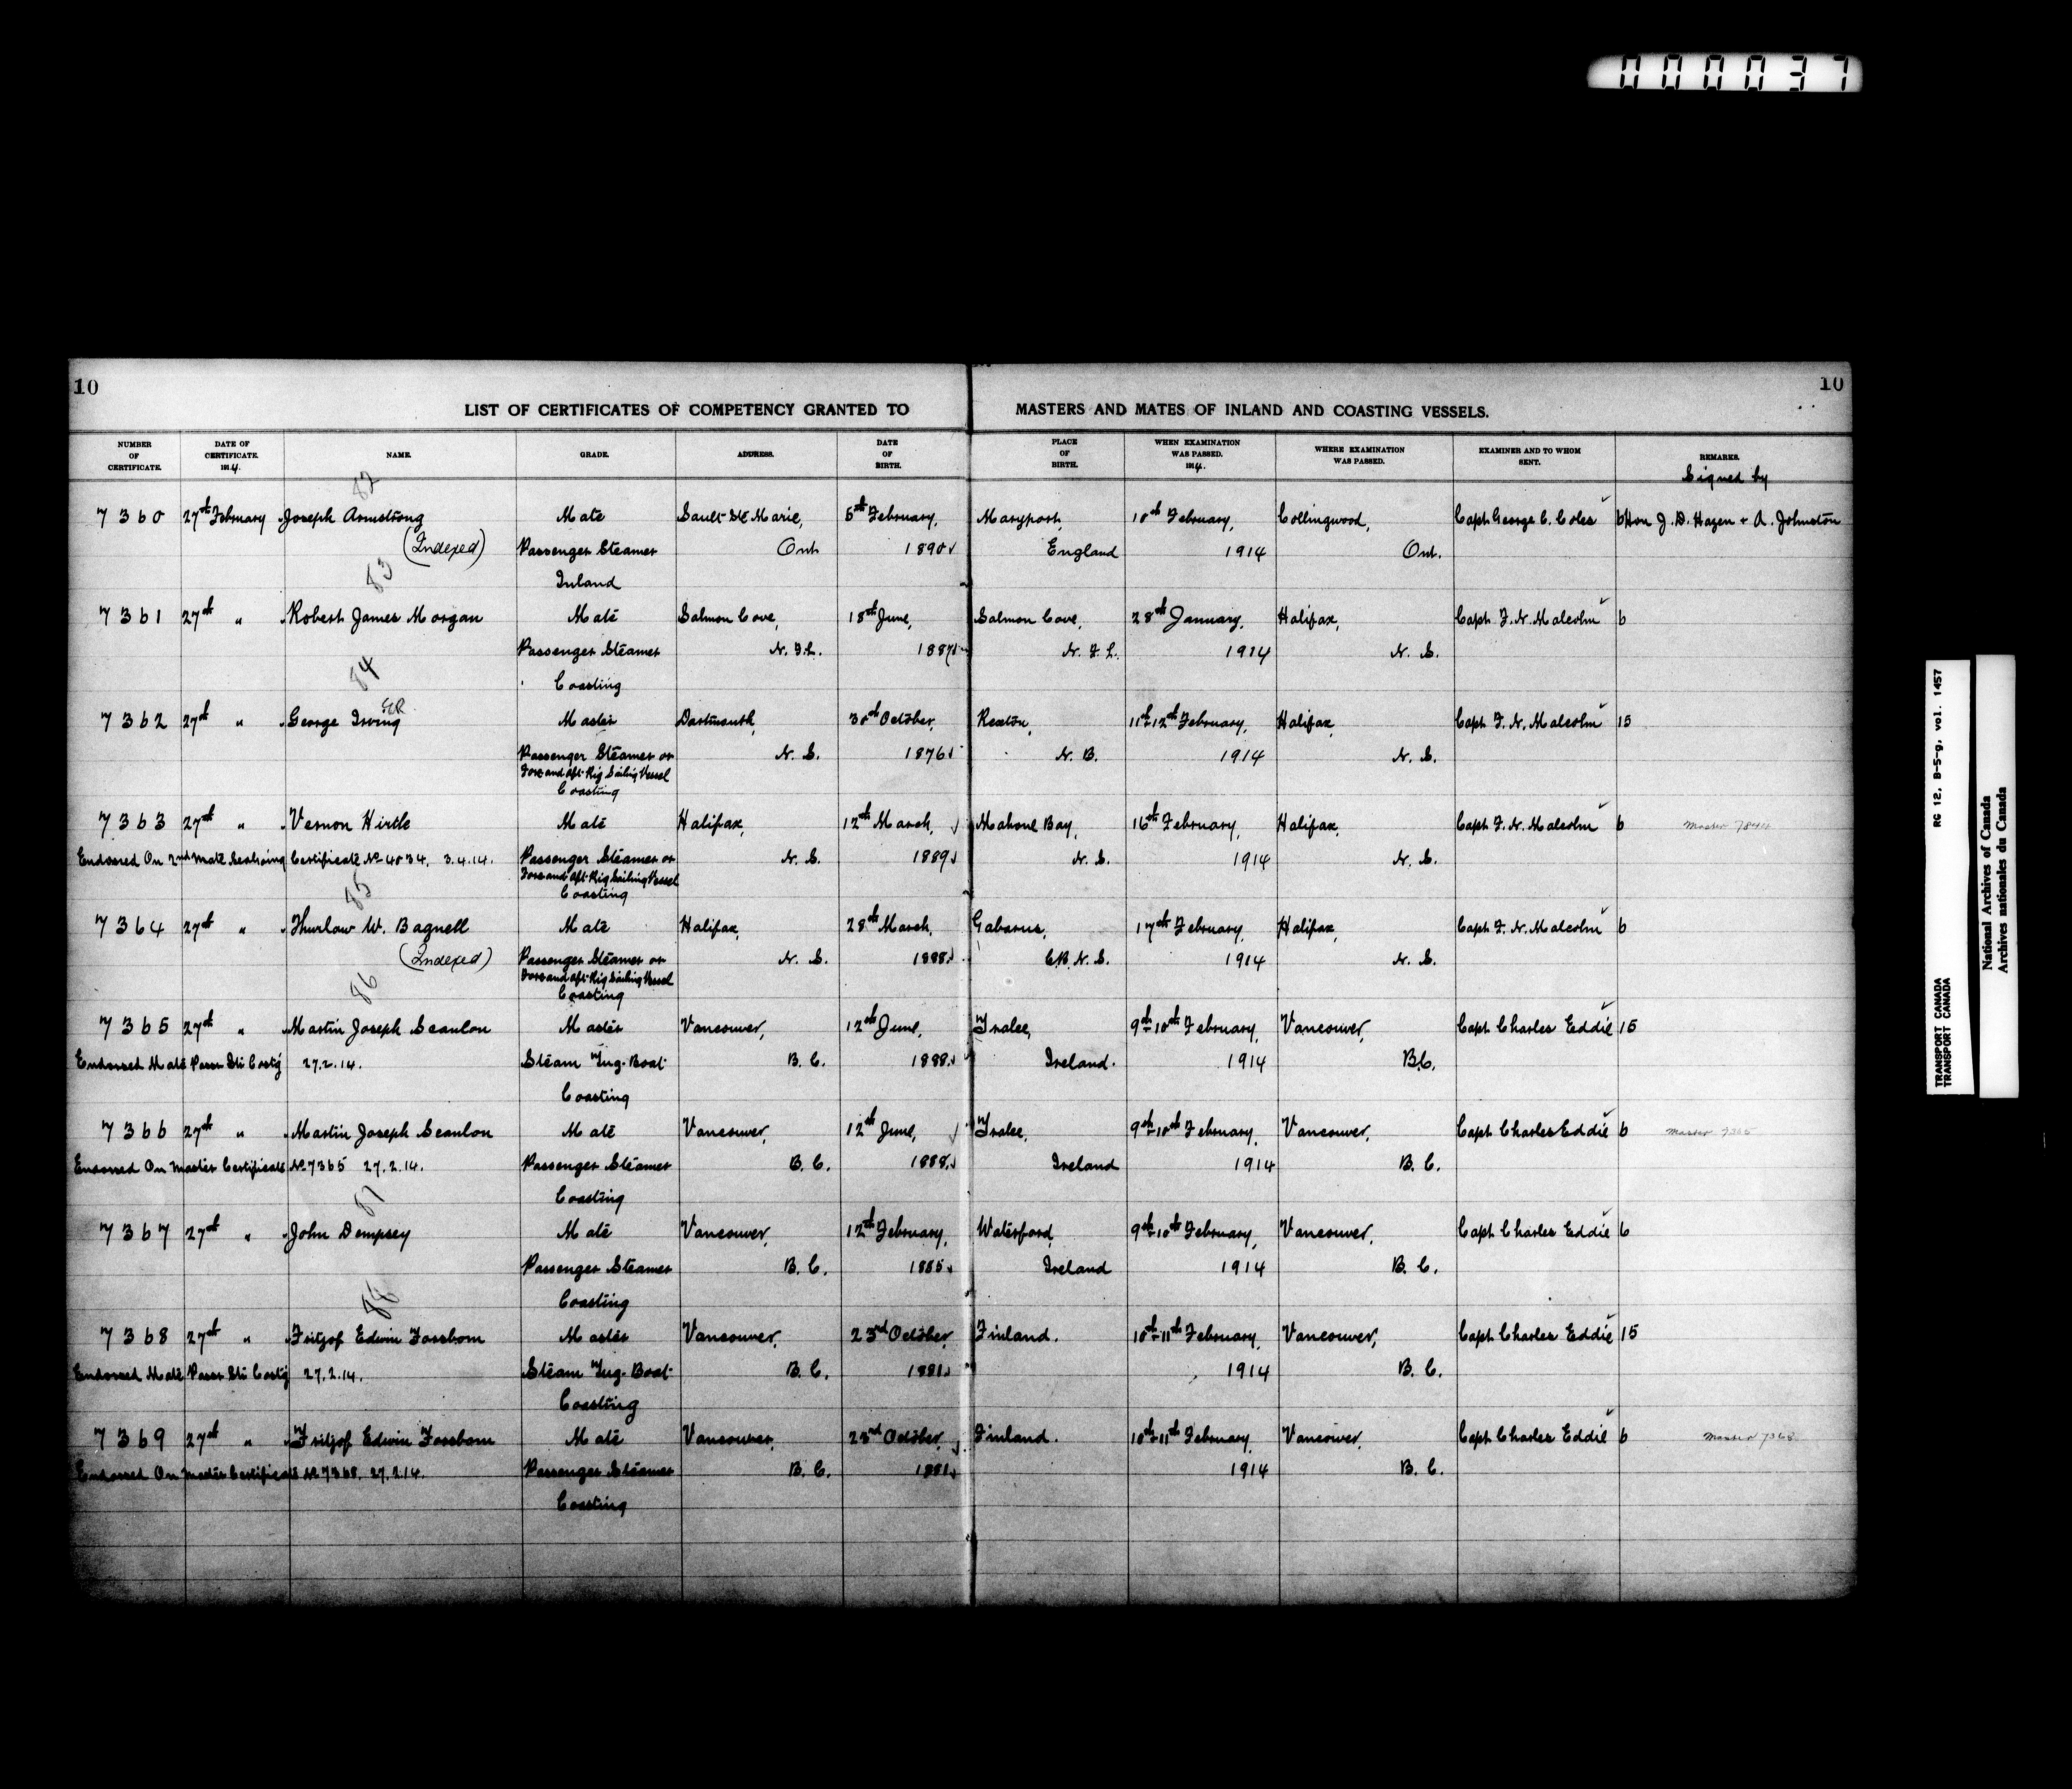 000037
10
10
LIST OF CERTIFICATES OF COMPETENCY GRANTED TO MASTERS AND MATES OF INLAND AND COASTING VESSELS.
NUMBER OF CERTIFICATE. DATE OF CERTIFICATE. 1914. NAME. GRADE. ADDRESS. DATE OF BIRTH. PLACE OF BIRTH. WHEN EXAMINATION WAS PASSED. 1914. WHERE EXAMINATION WAS PASSED. EXAMINER AND TO WHOM SENT. REMARKS.
Signed by
82
7360 27th February Joseph Armstrong Mate Sault Ste Marie, 5th February, Maryport, 10th February, Collingwood, Capt George C. Coles 6 Hon J. D. Hazen + A. Johnston
(Indexed) Passenger Steamer Ont 1890 England 1914 Ont.
83 Inland
7361 27th " Robert James Morgan Mate Salmon Cove, 18th June, Salmon Cove, 28th January, Halifax, Capt F. N. Malcolm 6
Passenger Steamer N. F. L. 1887 N. F. L. 1914 N. S.
84 Coasting
7362 27th " George Irving Master Dartmouth, 30th October, Rexton, 11th-12th February, Halifax, Capt F. N. Malcolm 15
Passenger Steamer or N. S. 1876 N. B. 1914 N. S.
Fore and aft Rig Sailing Vessel
Coasting
7363 27th " Vernon Hirtle Mate Halifax, 12th March, Mahone Bay, 16th February, Halifax, Capt F. N. Malcolm 6 Master
Endorsed On 2nd Mate Seagoing Certificate No 4034. 3.4.14. Passenger Steamer or N. S. 1889 N. S. 1914 N. S.
Fore and aft Rig Sailing Vessel
85 Coasting
7364 27th " Thurlow W. Bagnell Mate Halifax, 28th March, Gabarus, 17th February, Halifax, Capt F. N. Malcolm 6
(Indexed) Passenger Steamer or N. S. 1888 C.B. N. S. 1914 N. S.
Fore and aft Rig Sailing Vessel
86 Coasting
7365 27th " Martin Joseph Scanlon Master Vancouver, 12th June, Tralee, 9th-10th February, Vancouver, Capt Charles Eddie 15
Endorsed Mate Passr Str Coastg 27.2.14. Steam Tug-Boat B. C. 1888 Ireland. 1914 B.C.
Coasting
7366 27th " Martin Joseph Scanlon Mate Vancouver, 12th June, Tralee, 9th-10th February, Vancouver, Capt Charles Eddie 6 Master 7365
Endorsed On Master Certificate No 7365 27.2.14. Passenger Steamer B. C. 1888 Ireland 1914 B. C.
87 Coasting
7367 27th " John Dempsey Mate Vancouver, 12th February, Waterford, 9th-10th February, Vancouver, Capt Charles Eddie 6
Passenger Steamer B. C. 1885 Ireland 1914 B. C.
88 Coasting
7368 27th " Fritjof Edwin Fossbom Master Vancouver, 23rd October, Finland. 10th-11th February, Vancouver, Capt Charles Eddie 15
Endorsed Mate Passr Str Coastg 27.2.14. Steam Tug-Boat B. C. 1881 1914 B. C.
Coasting
7369 27th " Fritjof Edwin Fossbom Mate Vancouver, 23rd October, Finland. 10th-11th February, Vancouver, Capt Charles Eddie 6 Master 7368
Endorsed On Master Certificate No 7368. 27.2.14. Passenger Steamer B. C. 1881 1914 B. C.
Coasting
TRANSPORT CANADA RG 12, B-5-g, vol. 1457
TRANSPORT CANADA
National Archives of Canada
Archives nationales du Canada